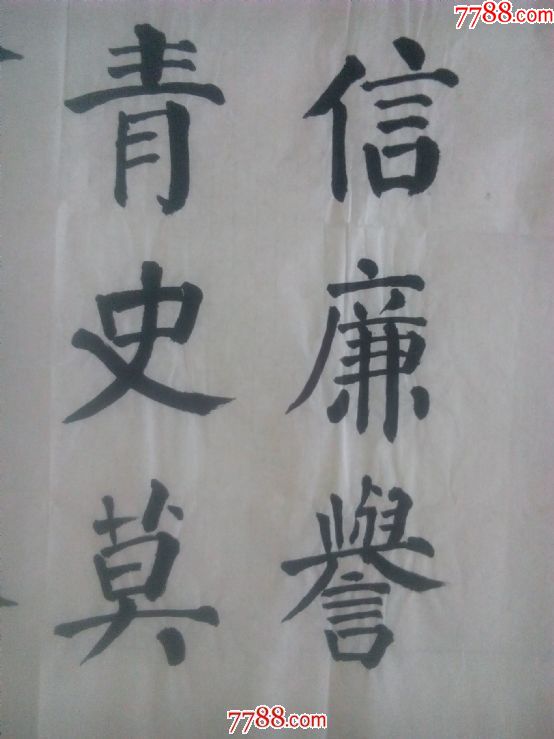 7788.com
信廉譽
青史莫
7788.com